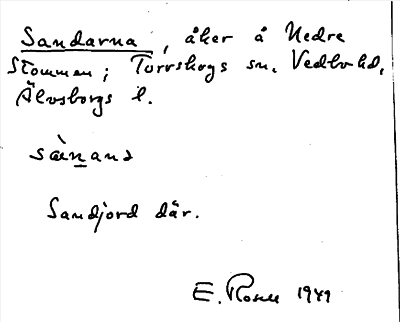 Sandarna, åker å Nedre
Stommen; Torrskogs sn. Vedbo hd,
Älvsborgs l.
sàṉana
Sandjord där.
E. Rosell 1941